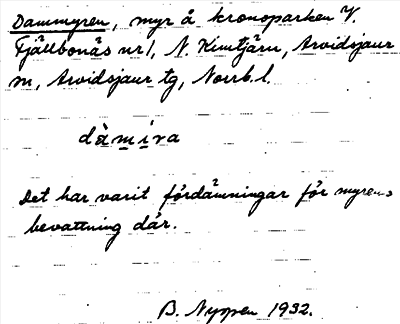 Dammyren, myr å kronoparken V.
Fjällbonäs nr 1, N. Kimtjärn, Arvidsjaur
m, Arvidsjaur tg, Norrb. l.
dàmíra
Det har varit fördämningar för myrens
bevattning där.
B. Nyman 1932.